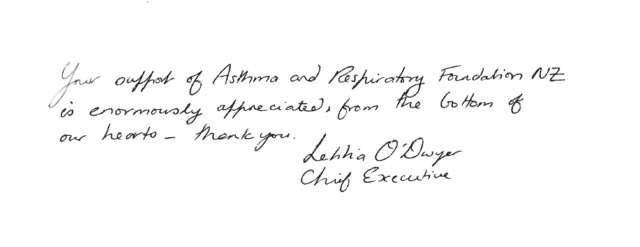 Your support of Asthma and Respiratory Foundation NZ
is enormously appreciated, from the bottom of
our hearts - thank you.
Letitia O'Dwyer
Chief Executive